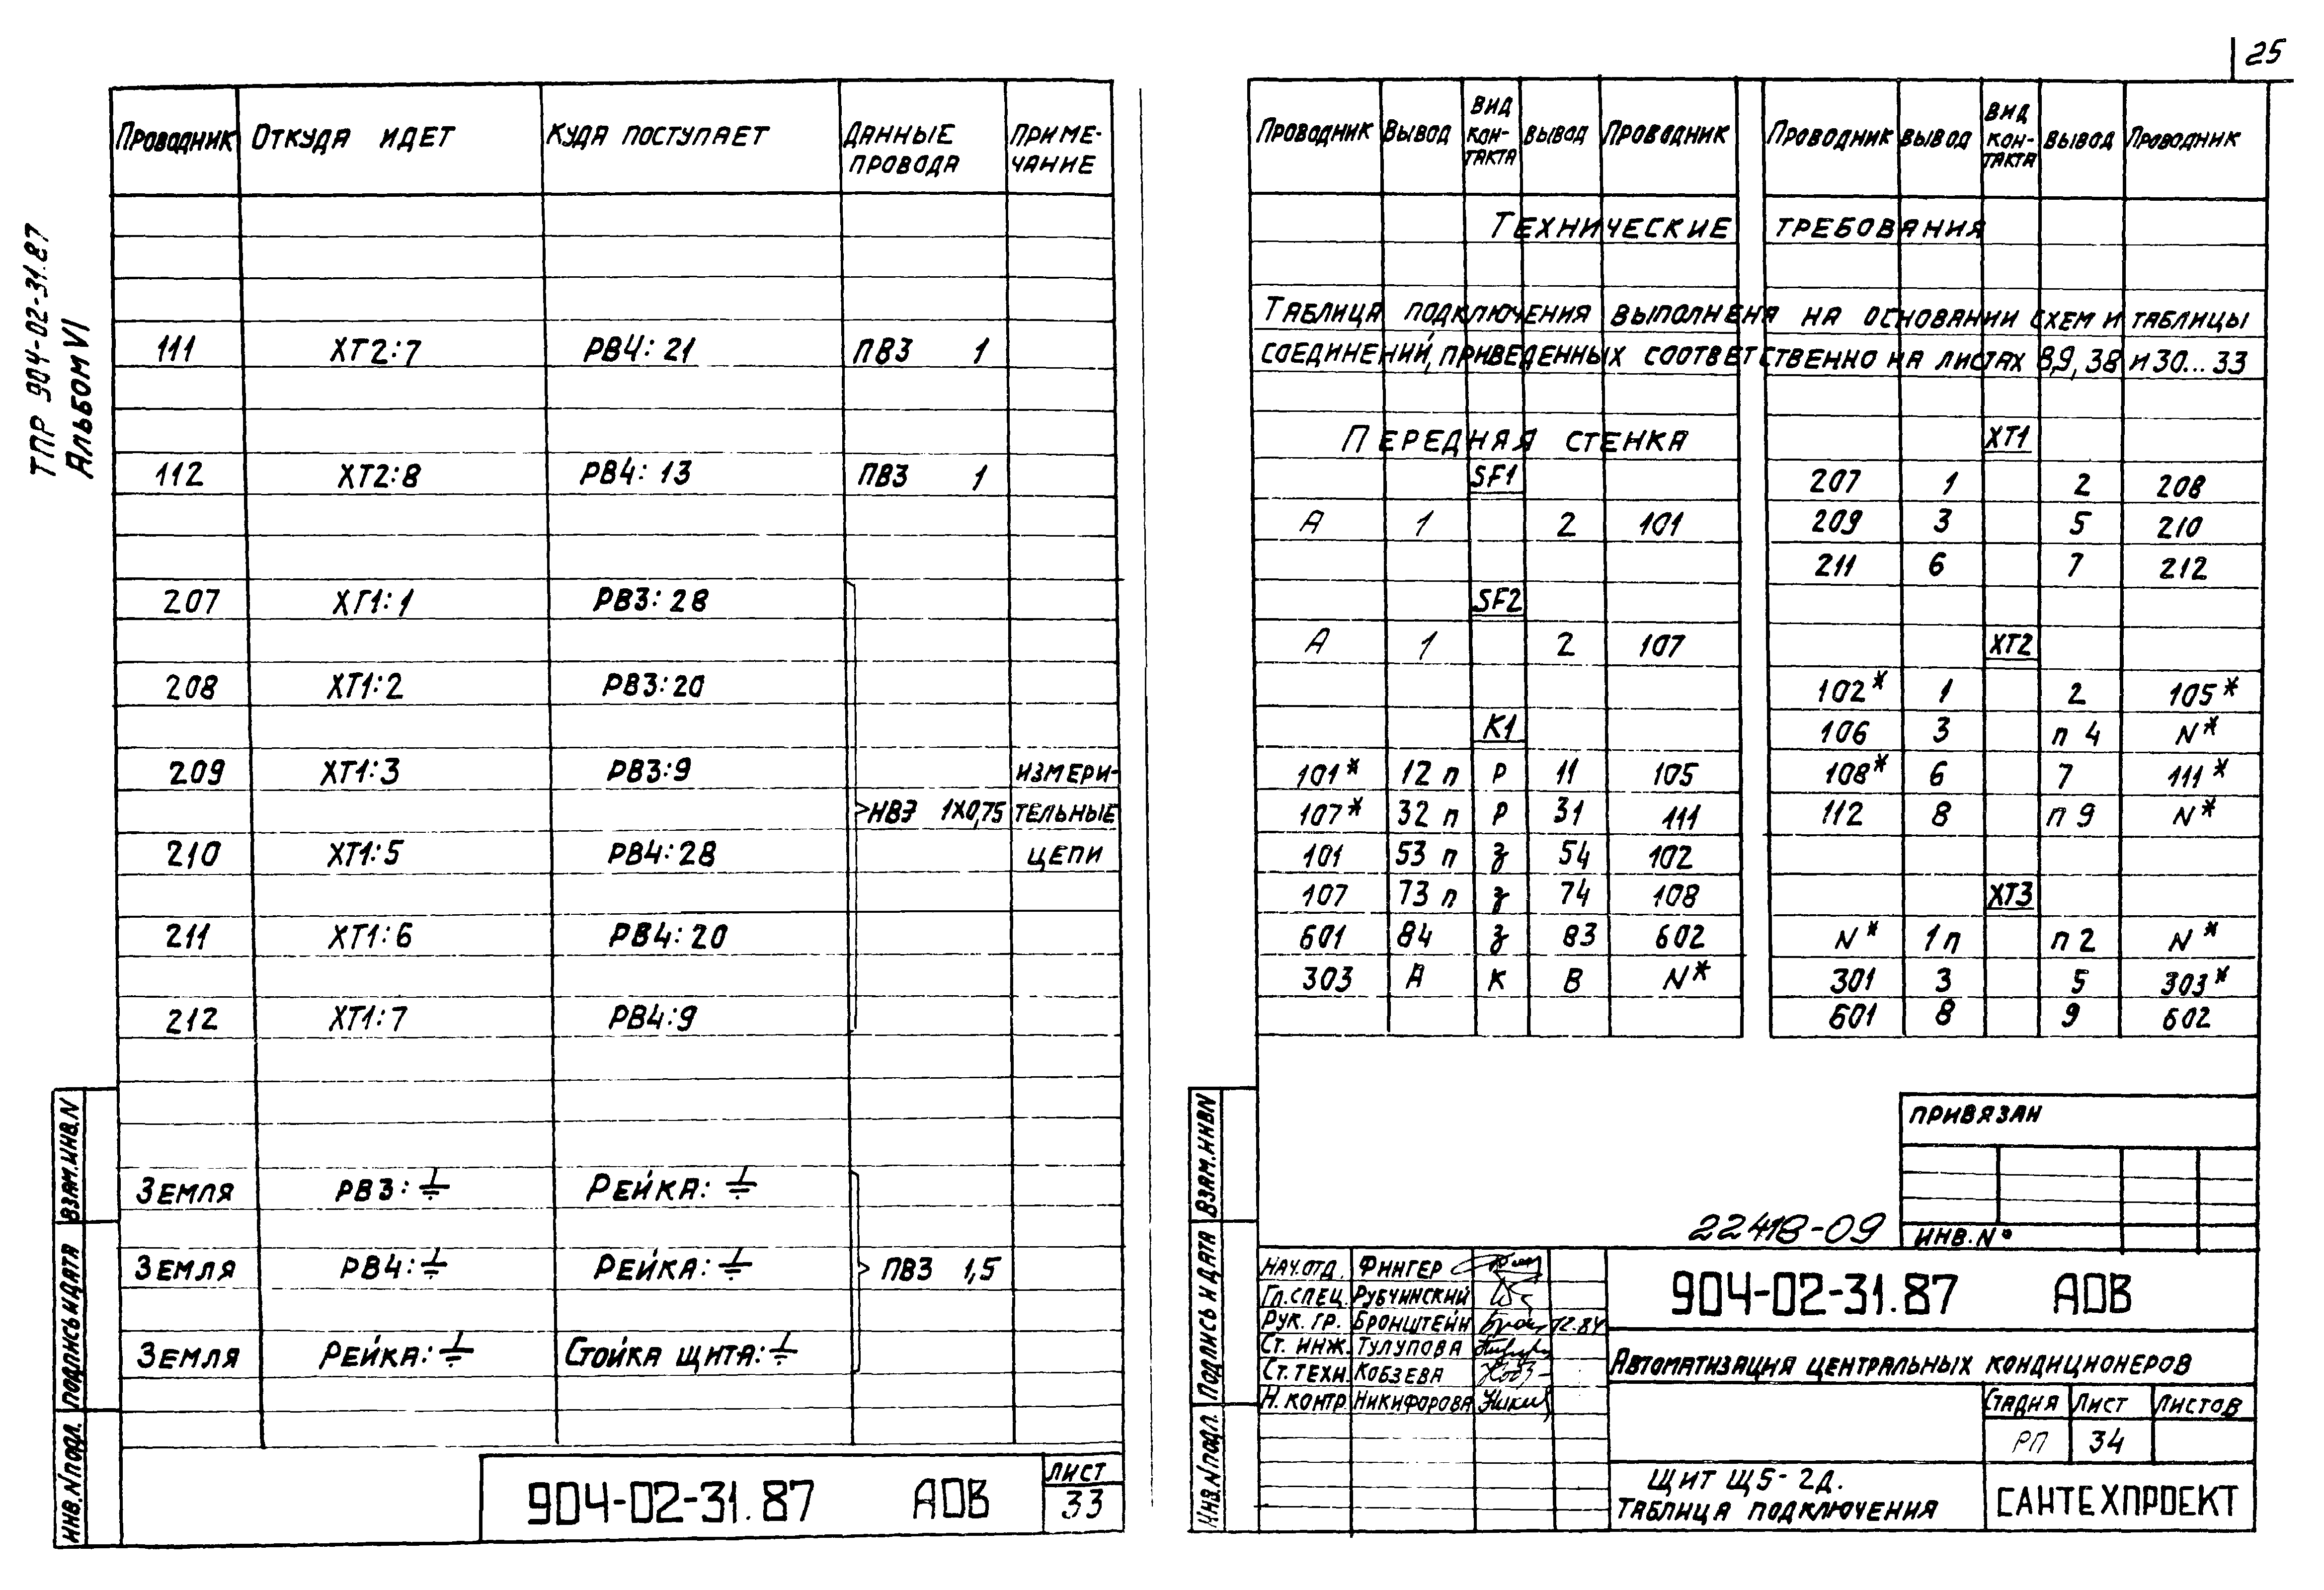 25
ТПР 904-02-31.87
Альбом VI
Проводник Откуда идет Куда поступает Данные провода Примечание
111 ХТ2:7 РВ4:21 ПВ3 1
112 ХТ2:8 РВ4:13 ПВ3 1
207 ХТ1:1 РВ3:28
208 ХТ1:2 РВ3:20
209 ХТ1:3 РВ3:9 измери-
НВЭ 1х0,75 тельные
210 ХТ1:5 РВ4:28 цепи
211 ХТ1:6 РВ4:20
212 ХТ1:7 РВ4:9
Земля РВ3:⏚ Рейка:⏚
Земля РВ4:⏚ Рейка:⏚ ПВ3 1,5
Земля Рейка:⏚ Стойка щита:⏚
Взам.инв.N
Подпись и дата
Инв.Nподл.
904-02-31.87 АОВ
Лист
33
Проводник Вывод Вид контакта Вывод Проводник Проводник Вывод Вид контакта Вывод Проводник
Технические требования
Таблица подключения выполнена на основании схем и таблицы
соединений, приведенных соответственно на листах 8,9,38 и 30...33
Передняя стенка
SF1
А 1 2 101
SF2
А 1 2 107
К1
101* 12 п Р 11 105
107* 32 п Р 31 111
101 53 п З 54 102
107 73 п З 74 108
601 84 З 83 602
303 А К В N*
ХТ1
207 1 2 208
209 3 5 210
211 6 7 212
ХТ2
102* 1 2 105*
106 3 п 4 N*
108* 6 7 111*
112 8 п 9 N*
ХТ3
N* 1п п2 N*
301 3 5 303*
601 8 9 602
Привязан
Инв.N°
22418-09
Взам.инвN
Подпись и дата
Инв.Nподл.
Нач.отд. Фингер
Гл.спец. Рубчинский
Рук. гр. Бронштейн
Ст. инж. Тулупова
Ст.техн. Кобзева
Н.контр. Никифорова
904-02-31.87 АОВ
Автоматизация центральных кондиционеров
Стадия Лист Листов
РП 34
Щит Щ5-2д.
Таблица подключения
САНТЕХПРОЕКТ